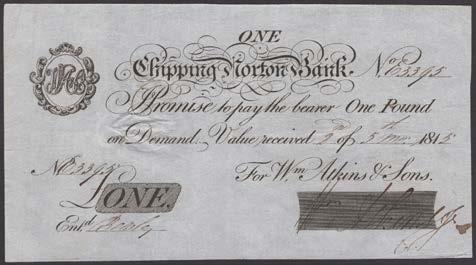 ONE
Chipping Norton Bank. No E3395
I Promise to pay the bearer One Pound
on Demand. Value received 2d of 5th Mo 1815
No E3395 For Wm Atkins & Sons.
£ONE.
Entd.